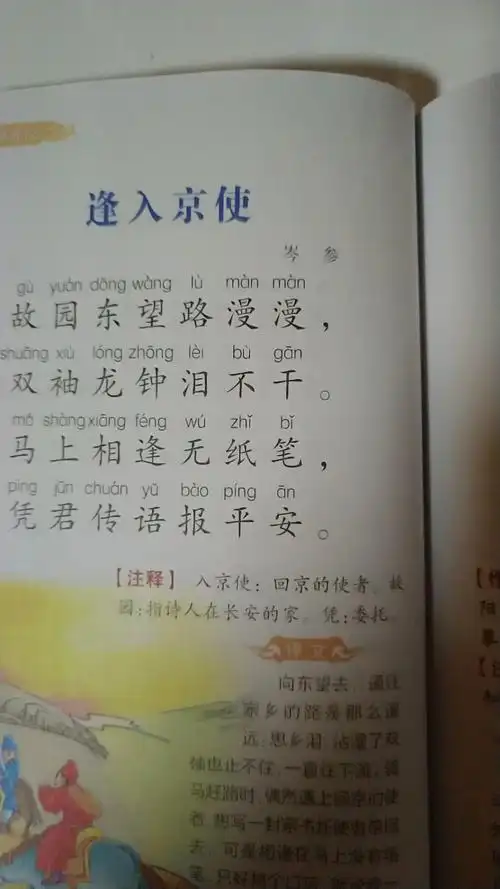 逢入京使
岑参
gù yuán dōng wàng lù màn màn
故园东望路漫漫，
shuāng xiù lóng zhōng lèi bù gān
双袖龙钟泪不干。
mǎ shàng xiāng féng wú zhǐ bǐ
马上相逢无纸笔，
píng jūn chuán yǔ bào píng ān
凭君传语报平安。
【注释】 入京使：回京的使者。故
园：指诗人在长安的家。 凭：委托。
译文
向东望去，通往
家乡的路是那么遥
远；思乡泪，沾湿了双
袖也止不住，一直往下流。骑
马赶路时，偶然遇上回京的使
者，想写一封家书托使者带回
去，可是相逢在马上没有纸